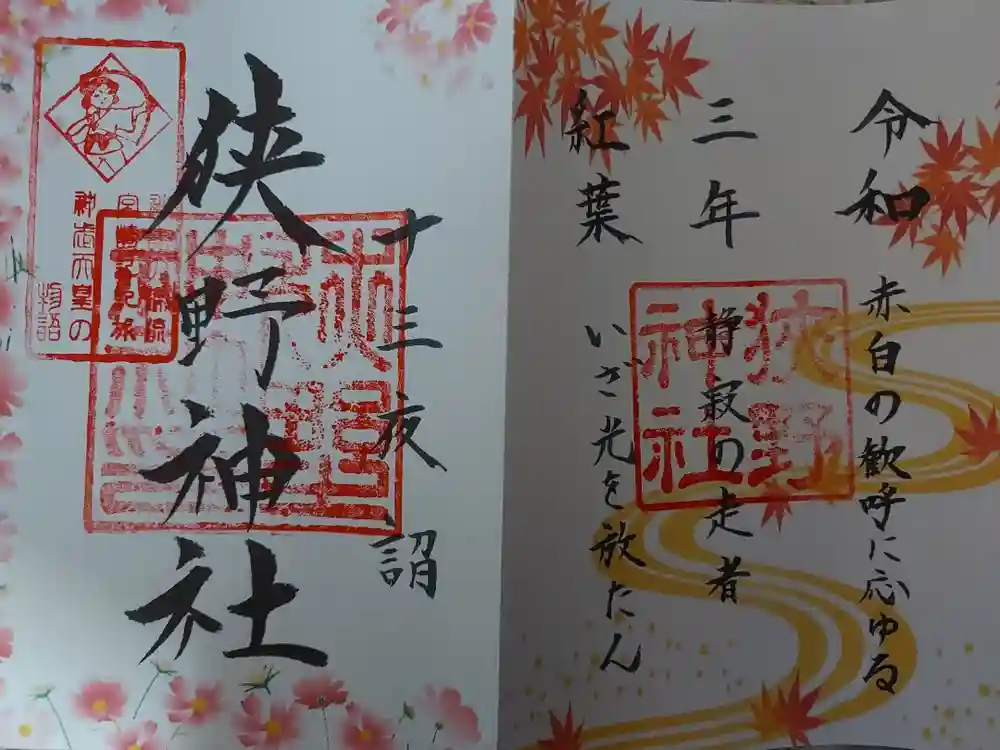 十三夜詣
狭野神社
狭野神社
神武天皇の
物語
令和 赤白の歓呼に応ゆる
三年 静寂の走者
紅葉 いざ光を放たん
狭野
神社